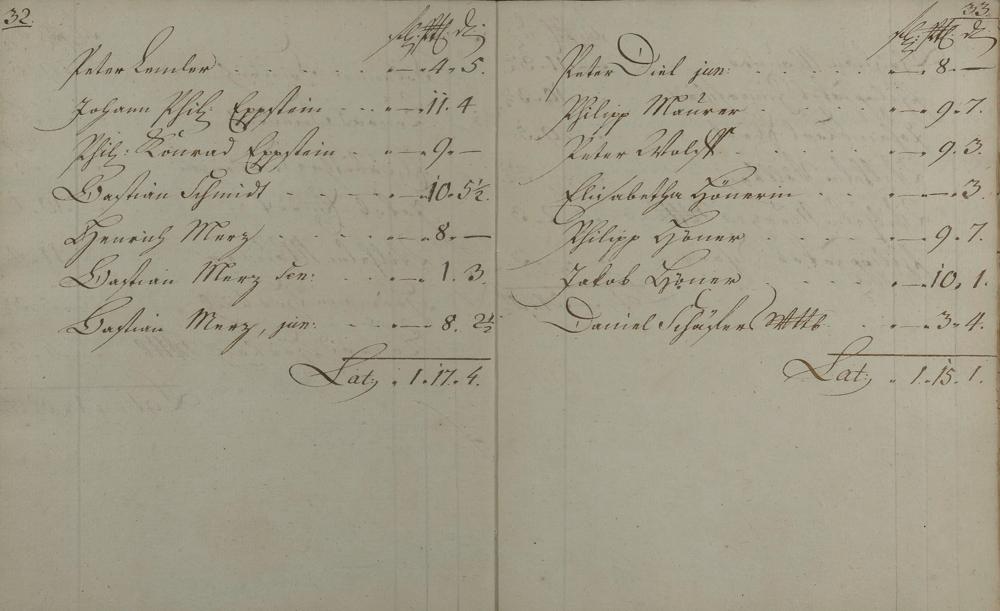 32.
fl: Xtl: d:
Peter Lemler . . . . . . „ — 4 „ 5.
Johann Phil: Eppstein . . . „ — 11. 4
Phil: Konrad Eppstein . „ — 9. —
Bastian Schmidt . . . . „ 10. 5½.
Henrich Merz . . . . „ — 8. —
Bastian Merz sen: . . . „ — 1. 3.
Bastian Merz, jun: . . . „ — 8.
Lat: „ 1. 17. 4.
33.
fl: Xtl: d:
Peter Diel jun: . . . . „ — 8. —
Philipp Maurer . . . . „ — 9. 7.
Peter Wolff . . . . „ — 9. 3.
Elisabetha Hönerin . . . „ — 3.
Philipp Höner . . . . „ — 9. 7.
Jakob Höner . . . . „ — 10. 1.
Daniel Schäfers Wttb . „ — 3 „ 4.
Lat: „ 1. 15. 1.